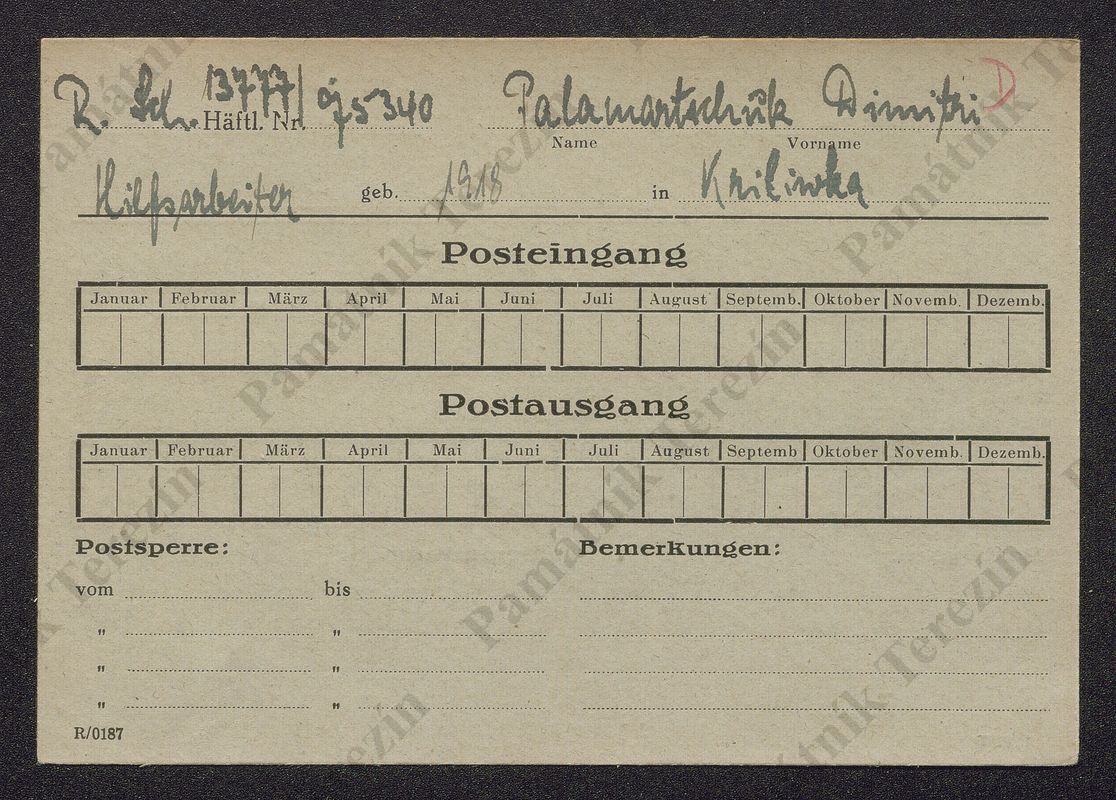 R. Sch. 13777/ 75340 Palamartschuk Dimitri D
Häftl. Nr. Name Vorname
Hilfsarbeiter geb. 1918 in Kriliwka
Posteingang
Januar Februar März April Mai Juni Juli August Septemb. Oktober Novemb. Dezemb.
Postausgang
Januar Februar März April Mai Juni Juli August Septemb Oktober Novemb. Dezemb.
Postsperre: Bemerkungen:
vom bis
" "
" "
" "
R/0187
Památník Terezín